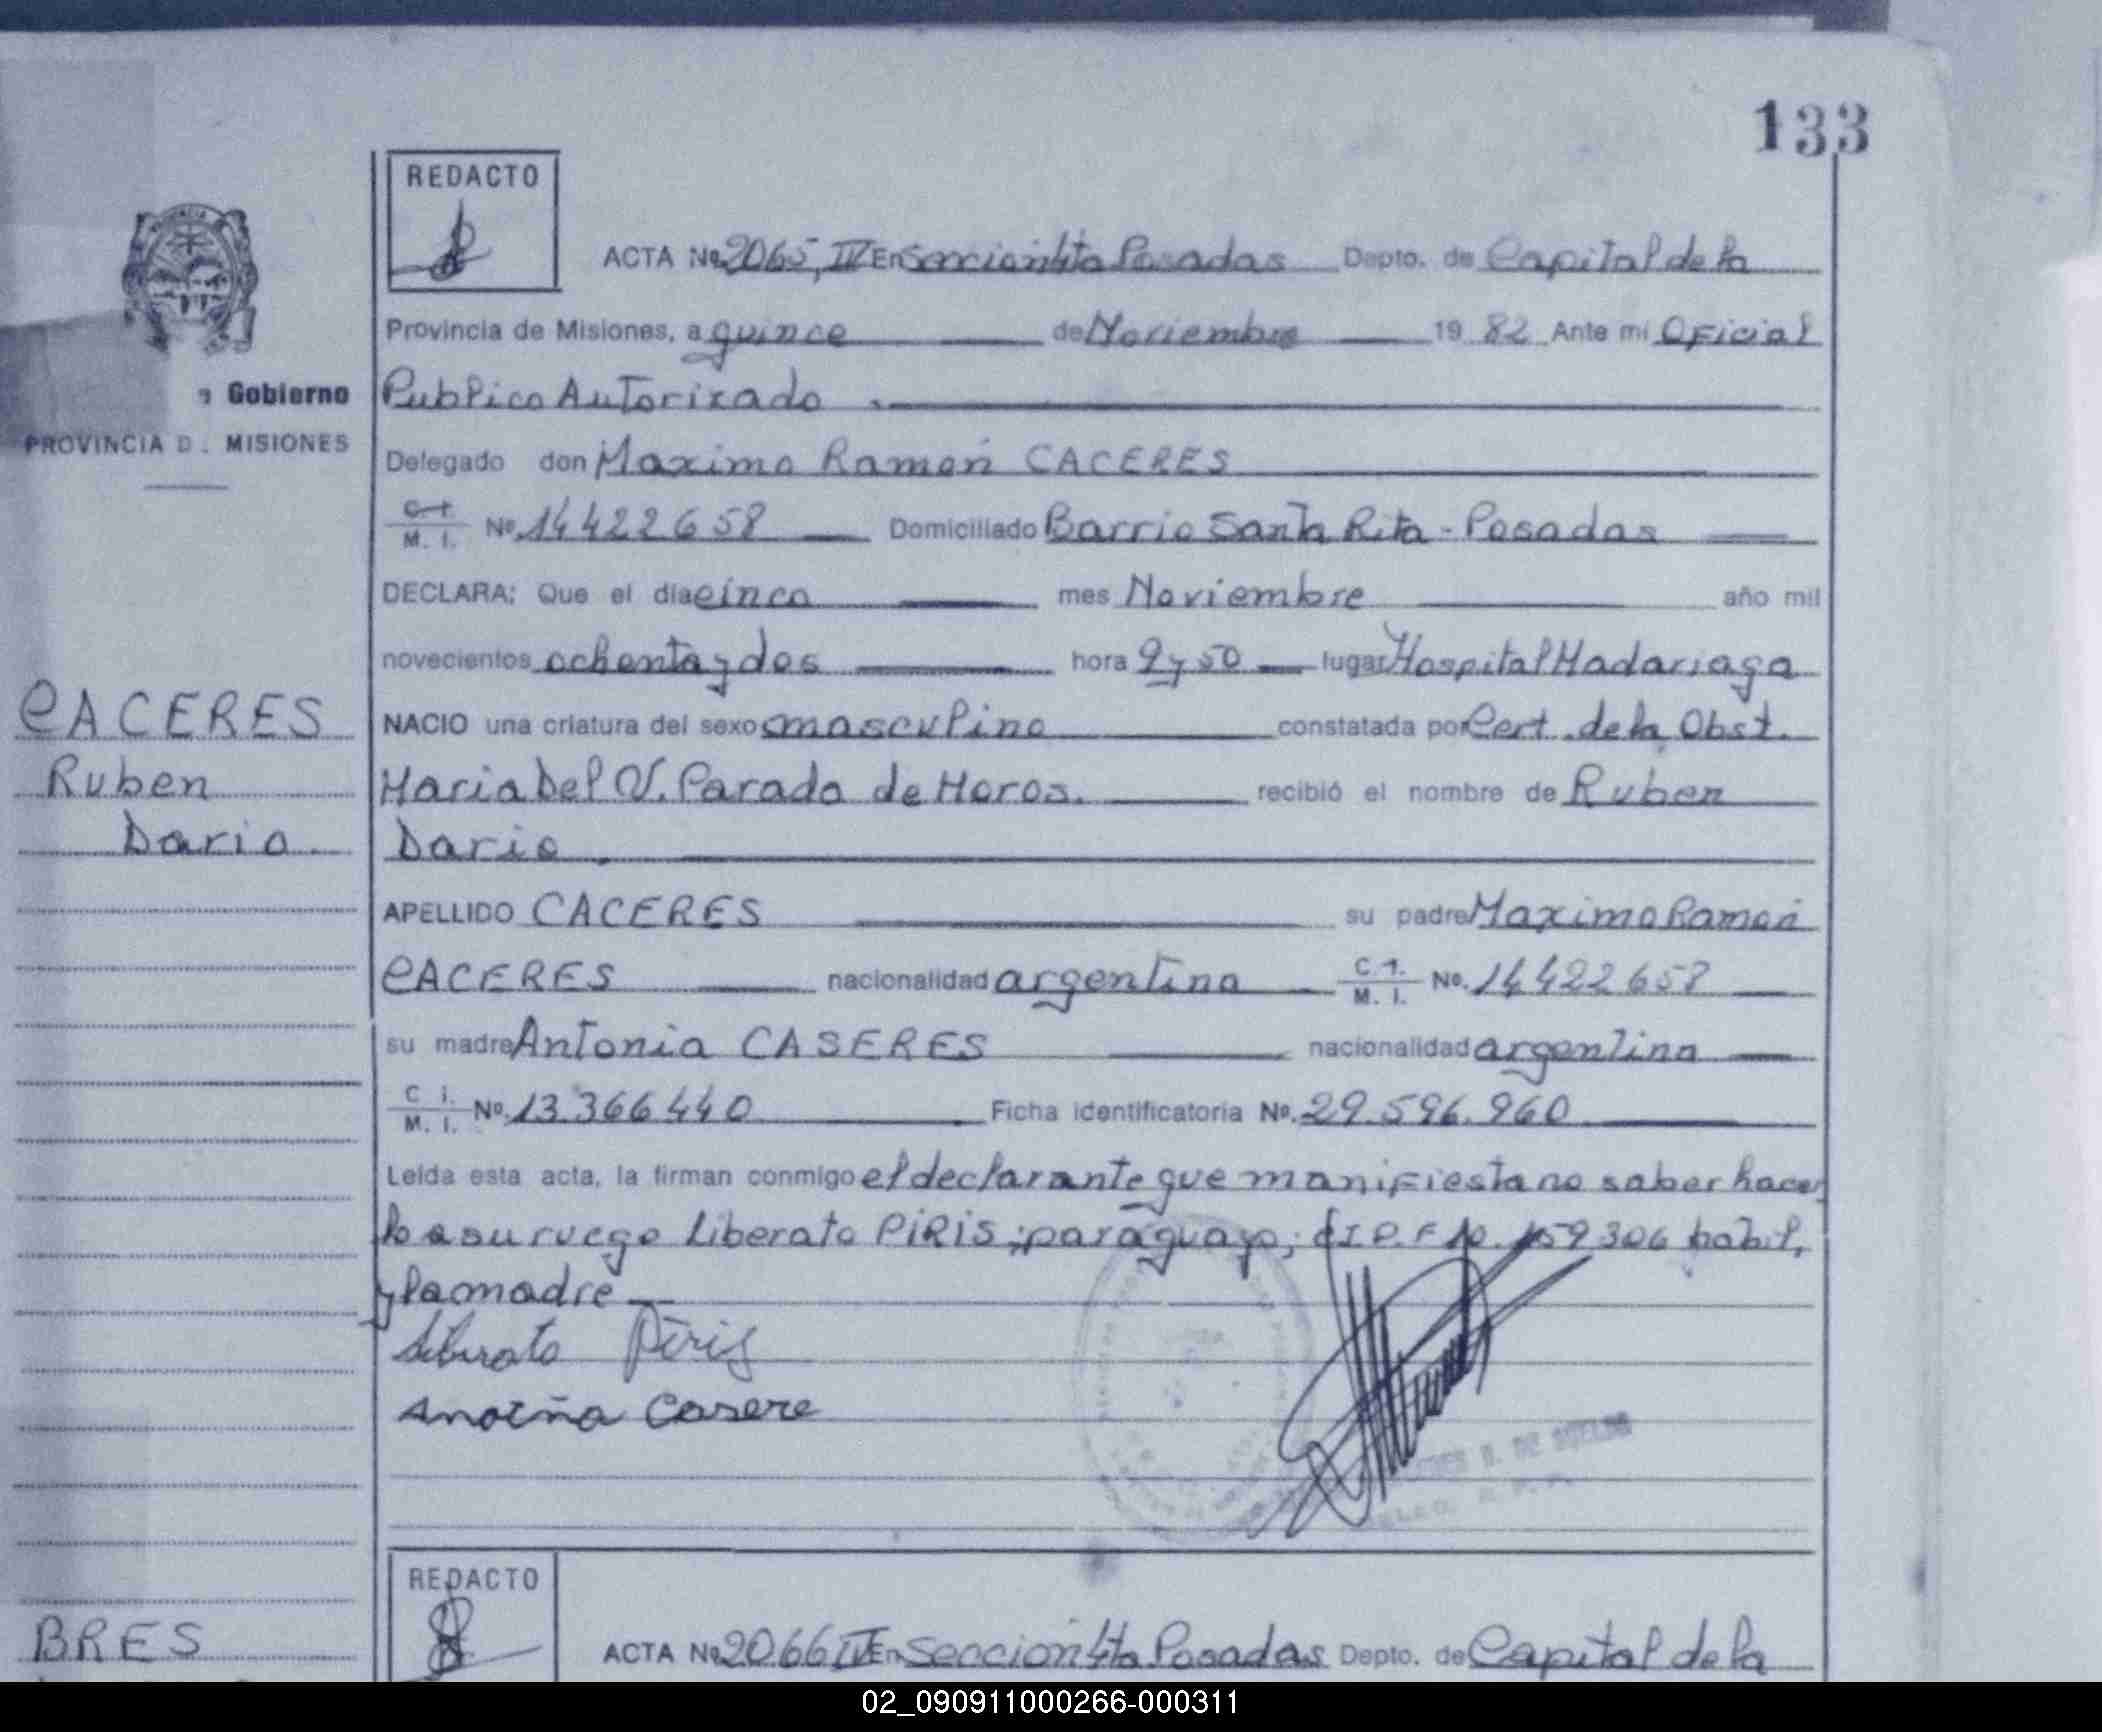 133
REDACTO
ACTA No. 2065, IV En Seccion 4ta Posadas Depto. de Capital de la
Provincia de Misiones, a quince de Noviembre 19 82 Ante mi Oficial
Gobierno
Publico Autorizado
PROVINCIA D. MISIONES
Delegado don Maximo Ramón CACERES
C.I. M. I. No. 14422658 Domiciliado Barrio Santa Rita - Posadas
DECLARA: Que el día cinco mes Noviembre año mil
novecientos ochenta y dos hora 9 y 50 lugar Hospital Madariaga
CACERES
NACIO una criatura del sexo masculino constatada por Cert. de la Obst.
Ruben
Maria Del V. Parada de Moros. recibió el nombre de Ruben
Dario
Dario.
APELLIDO CACERES su padre Maximo Ramón
CACERES nacionalidad argentina C.I. M. I. No. 14422658
su madre Antonia CASERES nacionalidad argentina
C I. M. I. No. 13.366440 Ficha identificatoria No. 29.596.960
Leida esta acta, la firman conmigo el declarante que manifiesta no saber hacer
lo a su ruego Liberato PIRIS; paraguayo; 159.306 habil,
y la madre
Liberato Piris
Anotña Casere
DE SUELDO
REDACTO
BRES
ACTA No. 2066 IV En Seccion 4ta Posadas Depto. de Capital de la
02_090911000266-000311